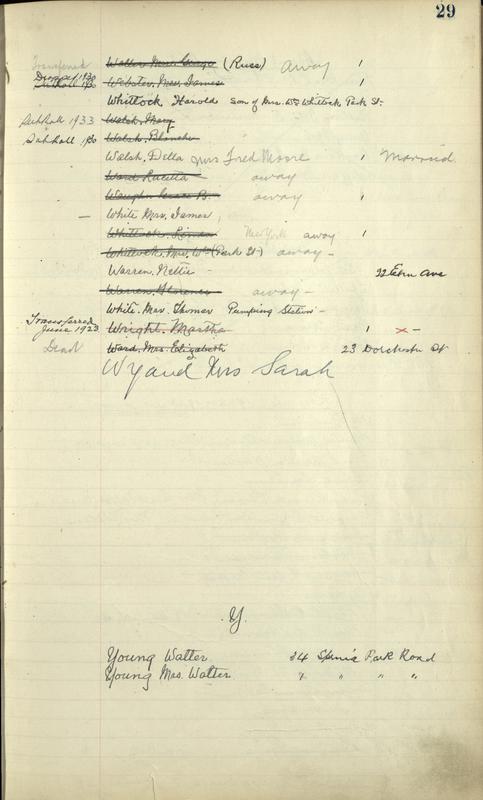 29
Transferred Walter Mrs. (Russ) away 1
1930 Webster, Mrs. James 1
Whittock, Harold son of Mrs. Wm Whittock Park St.
1933 Walsh, Mary
Walsh, Blanche
Walsh, Della Mrs Fred Moore 1 Married
Ward Luella away
Vaughn away 1
— White Mrs. James,
Whittock, Linda New York away 1
Whittock, Mrs. Wm (Park St) away —
Warren, Nettie 22 Elm Ave
Warren, Florence away —
White. Mrs. Thomas Pumping Station —
Transferred
June 1923 Wright. Martha 1 x —
Dead Ward, Mrs. Elizabeth 23 Dorchester St
Wyand Mrs Sarah
Y.
Young Walter 34 Park Road
Young Mrs. Walter " " " "